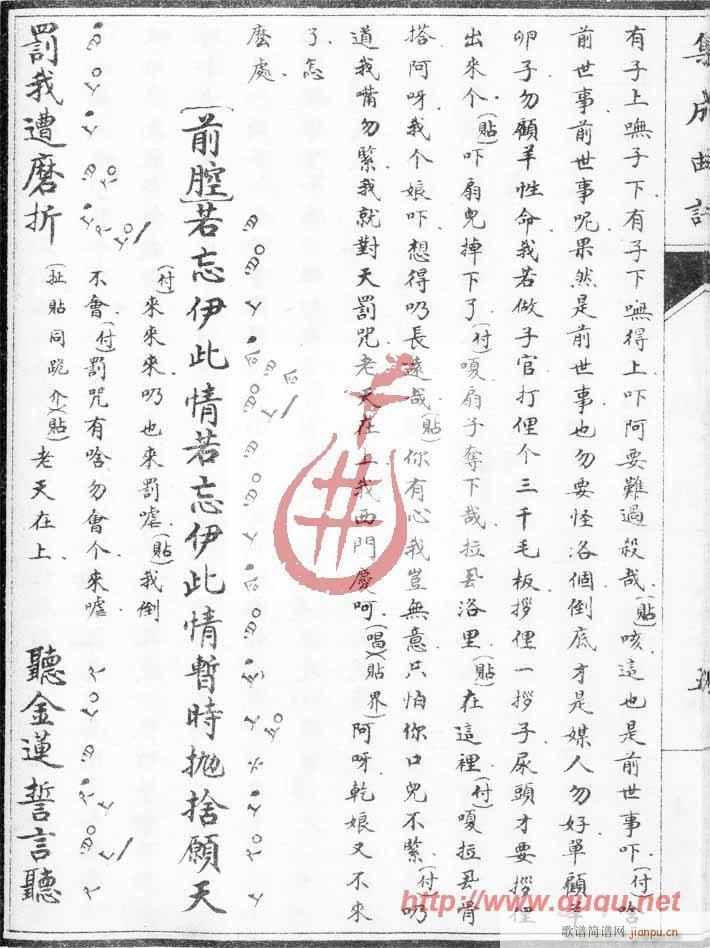 集成曲譜
有子上嘸子下有子下嘸得上吓阿要難過殺哉(貼)咳這也是前世事吓(付)啥
前世事前世事呢果然是前世事也勿要怪洛個倒底才是媒人勿好單顧羊
卵子勿顧羊性命我若做子官打俚个三千毛板拶俚一拶子尿頭才要拶俚
出來个(貼)吓扇兒掉下了(付)嗄扇子奪下哉拉厾洛里(貼)在這裡(付)嗄拉厾骨
搭阿呀我个娘吓想得吶長遠哉(貼)你有心我豈無意只怕你口兒不緊(付)吶
道我嘴勿緊我就對天罰咒老天在上我西門慶呵(唱)(貼界)阿呀乾娘又不來
了怎
麼處
[前腔]若忘伊此情若忘伊此情暫時拋捨願天
(付)來來來吶也來罰嘘(貼)我倒
不會(付)罰咒有啥勿會个來嘘
(扯貼同跪介)(貼)老天在上
罰我遭磨折
聽金蓮誓言聽
http://www.ququ.net
歌谱简谱网
jianpu.cn